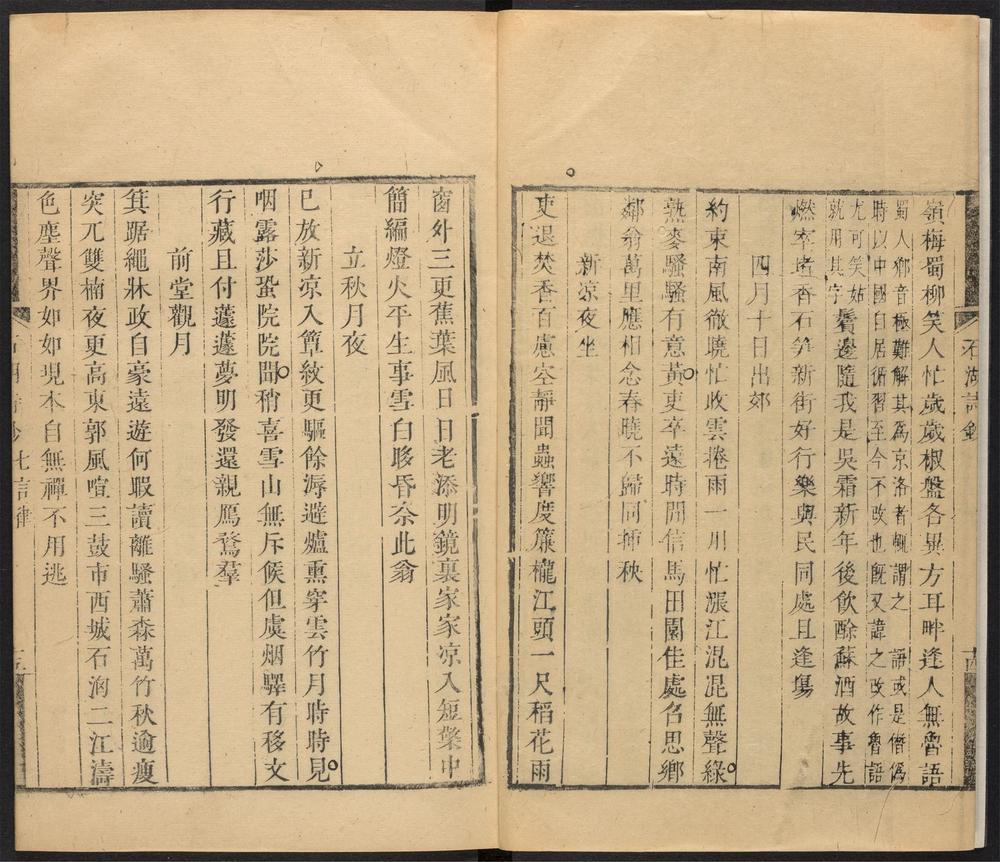 石湖詩鈔　十四
嶺梅蜀柳笑人忙歲歲椒盤各異方耳畔逢人無魯語
蜀人鄉音極難解其爲京洛者輒謂之　語或是僭僞
時以中國自居循習至今不改也旣又諱之改作魯語
尤可笑姑
就用其字
鬢邊隨我是吳霜新年後飲酴蘇酒故事先
燃窣堵香石笋新街好行樂與民同處且逢塲
四月十日出郊
約束南風徹曉忙收雲捲雨一川忙漲江混混無聲綠
熟麥騷騷有意黃吏卒遠時閒信馬田園佳處忽思鄉
鄰翁萬里應相念春曉不歸同揷秧
新凉夜坐
吏退焚香百慮空靜聞蟲響度簾櫳江頭一尺稻花雨
窗外三更蕉葉風日日老添明鏡裏家家凉入短檠中
簡編燈火平生事雪白眵昏奈此翁
立秋月夜
已放新凉入簟紋更驅餘溽避爐熏穿雲竹月時時見
咽露莎蛩院院聞稍喜雪山無斥候但虞烟驛有移文
行藏且付蘧蘧夢明發還親鴈鶩羣
前堂觀月
箕踞繩牀政自豪遠遊何暇讀離騷蕭森萬竹秋逾瘦
突兀雙楠夜更高東郭風喧三鼓市西城石洶二江濤
色塵聲界如如現本自無禪不用逃
石湖詩鈔　七言律